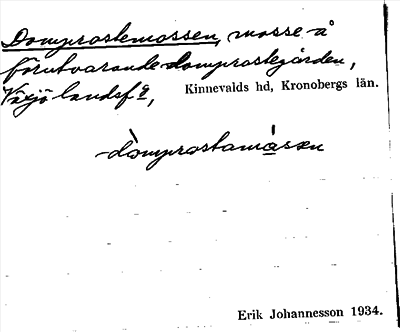 Domprostemossen, mosse å
förutvarande domprostegården,
Växjö landsf⁠ö, Kinnevalds hd, Kronobergs län.
-dòmprostamǻsen
Erik Johannesson 1934.